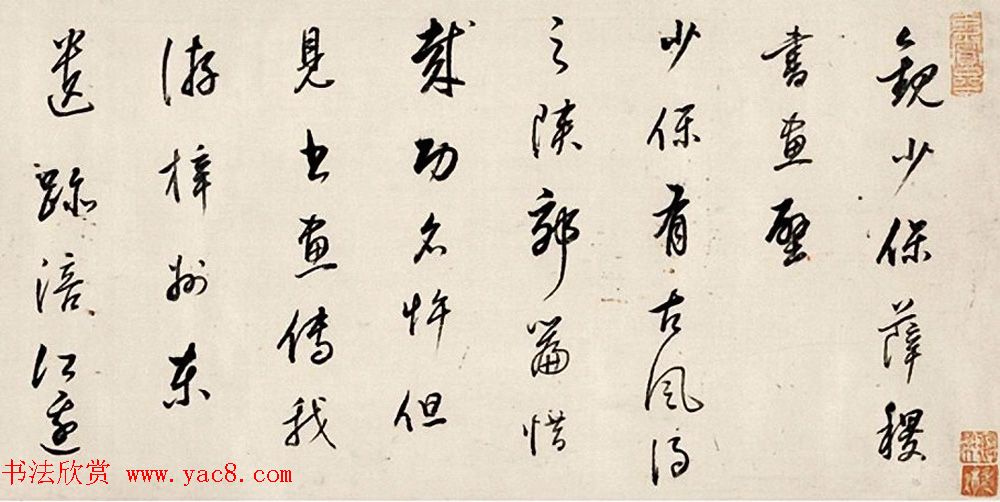 觀少保薛稷
書畫壁
少保有古風得
之陝郊篇惜
哉功名忤但
見書畫傳我
游梓州東
遺跡涪江邊
书法欣赏 www.yac8.com